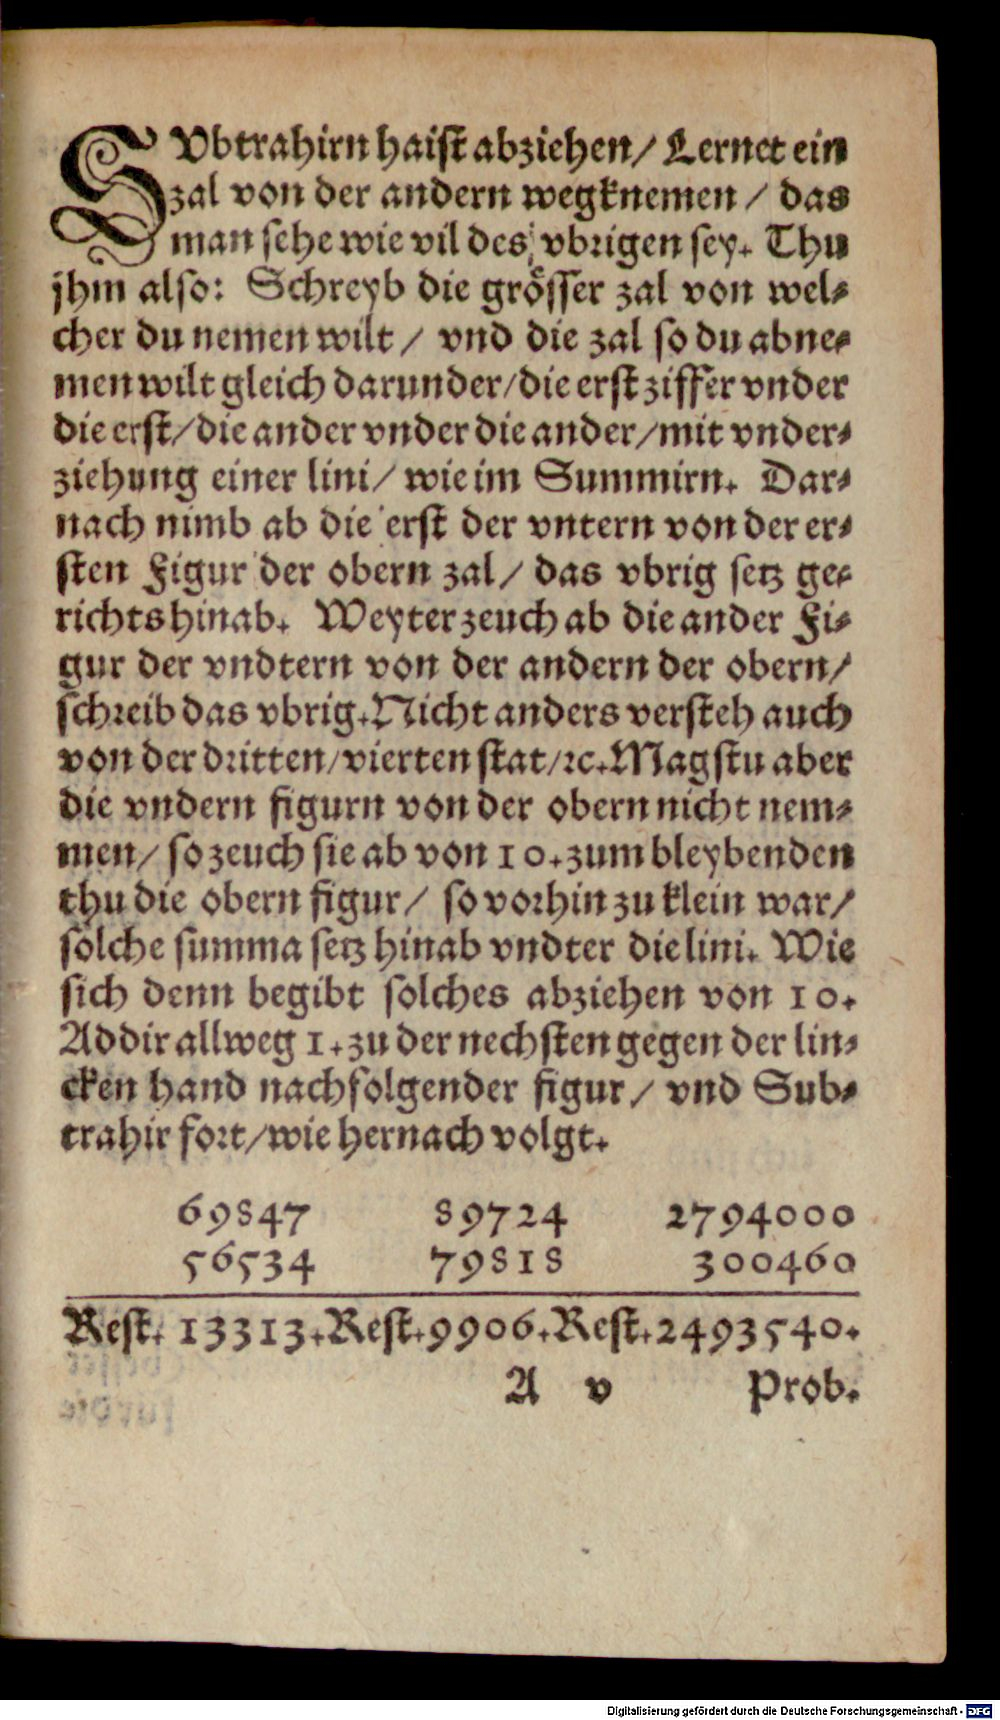 SVbtrahirn haist abziehen/ Lernet ein
zal von der andern wegknemen / das
man sehe wie vil des vbrigen sey. Thu
jhm also: Schreyb die grösser zal von wel-
cher du nemen wilt / vnd die zal so du abne-
men wilt gleich darunder/die erst ziffer vnder
die erst/die ander vnder die ander/mit vnder-
ziehung einer lini/ wie im Summirn. Dar-
nach nimb ab die erst der vntern von der er-
sten Figur der obern zal/ das vbrig setz ge-
richts hinab. Weyter zeuch ab die ander Fi-
gur der vndtern von der andern der obern/
schreib das vbrig. Nicht anders versteh auch
von der dritten/vierten stat/ꝛc. Magstu aber
die vndern figurn von der obern nicht nem-
men/ so zeuch sie ab von 10. zum bleybenden
thu die obern figur/ so vorhin zu klein war/
solche summa setz hinab vndter die lini. Wie
sich denn begibt solches abziehen von 10.
Addir allweg 1. zu der nechsten gegen der lin-
cken hand nachfolgender figur/ vnd Sub-
trahir fort/wie hernach volgt.
69847 89724 2794000
56534 79818 300460
Rest. 13313. Rest. 9906. Rest. 2493540.
A v Prob.
Digitalisierung gefördert durch die Deutsche Forschungsgemeinschaft - DFG